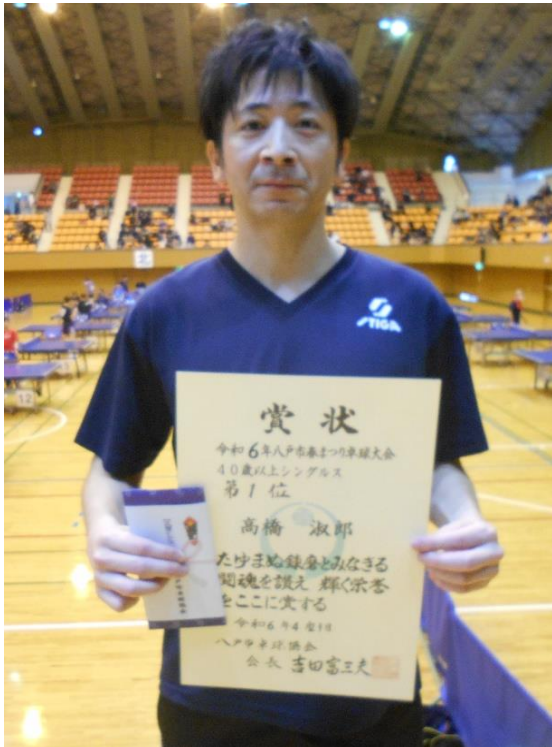 STIGA
賞状
令和6年八戸市春まつり卓球大会
40歳以上シングルス
第1位
髙橋 淑郎
たゆまぬ錬磨とみなぎる
闘魂を讃え 輝く栄誉
をここに賞する
令和6年4月
八戸市卓球協会
会長 吉田富三夫
12